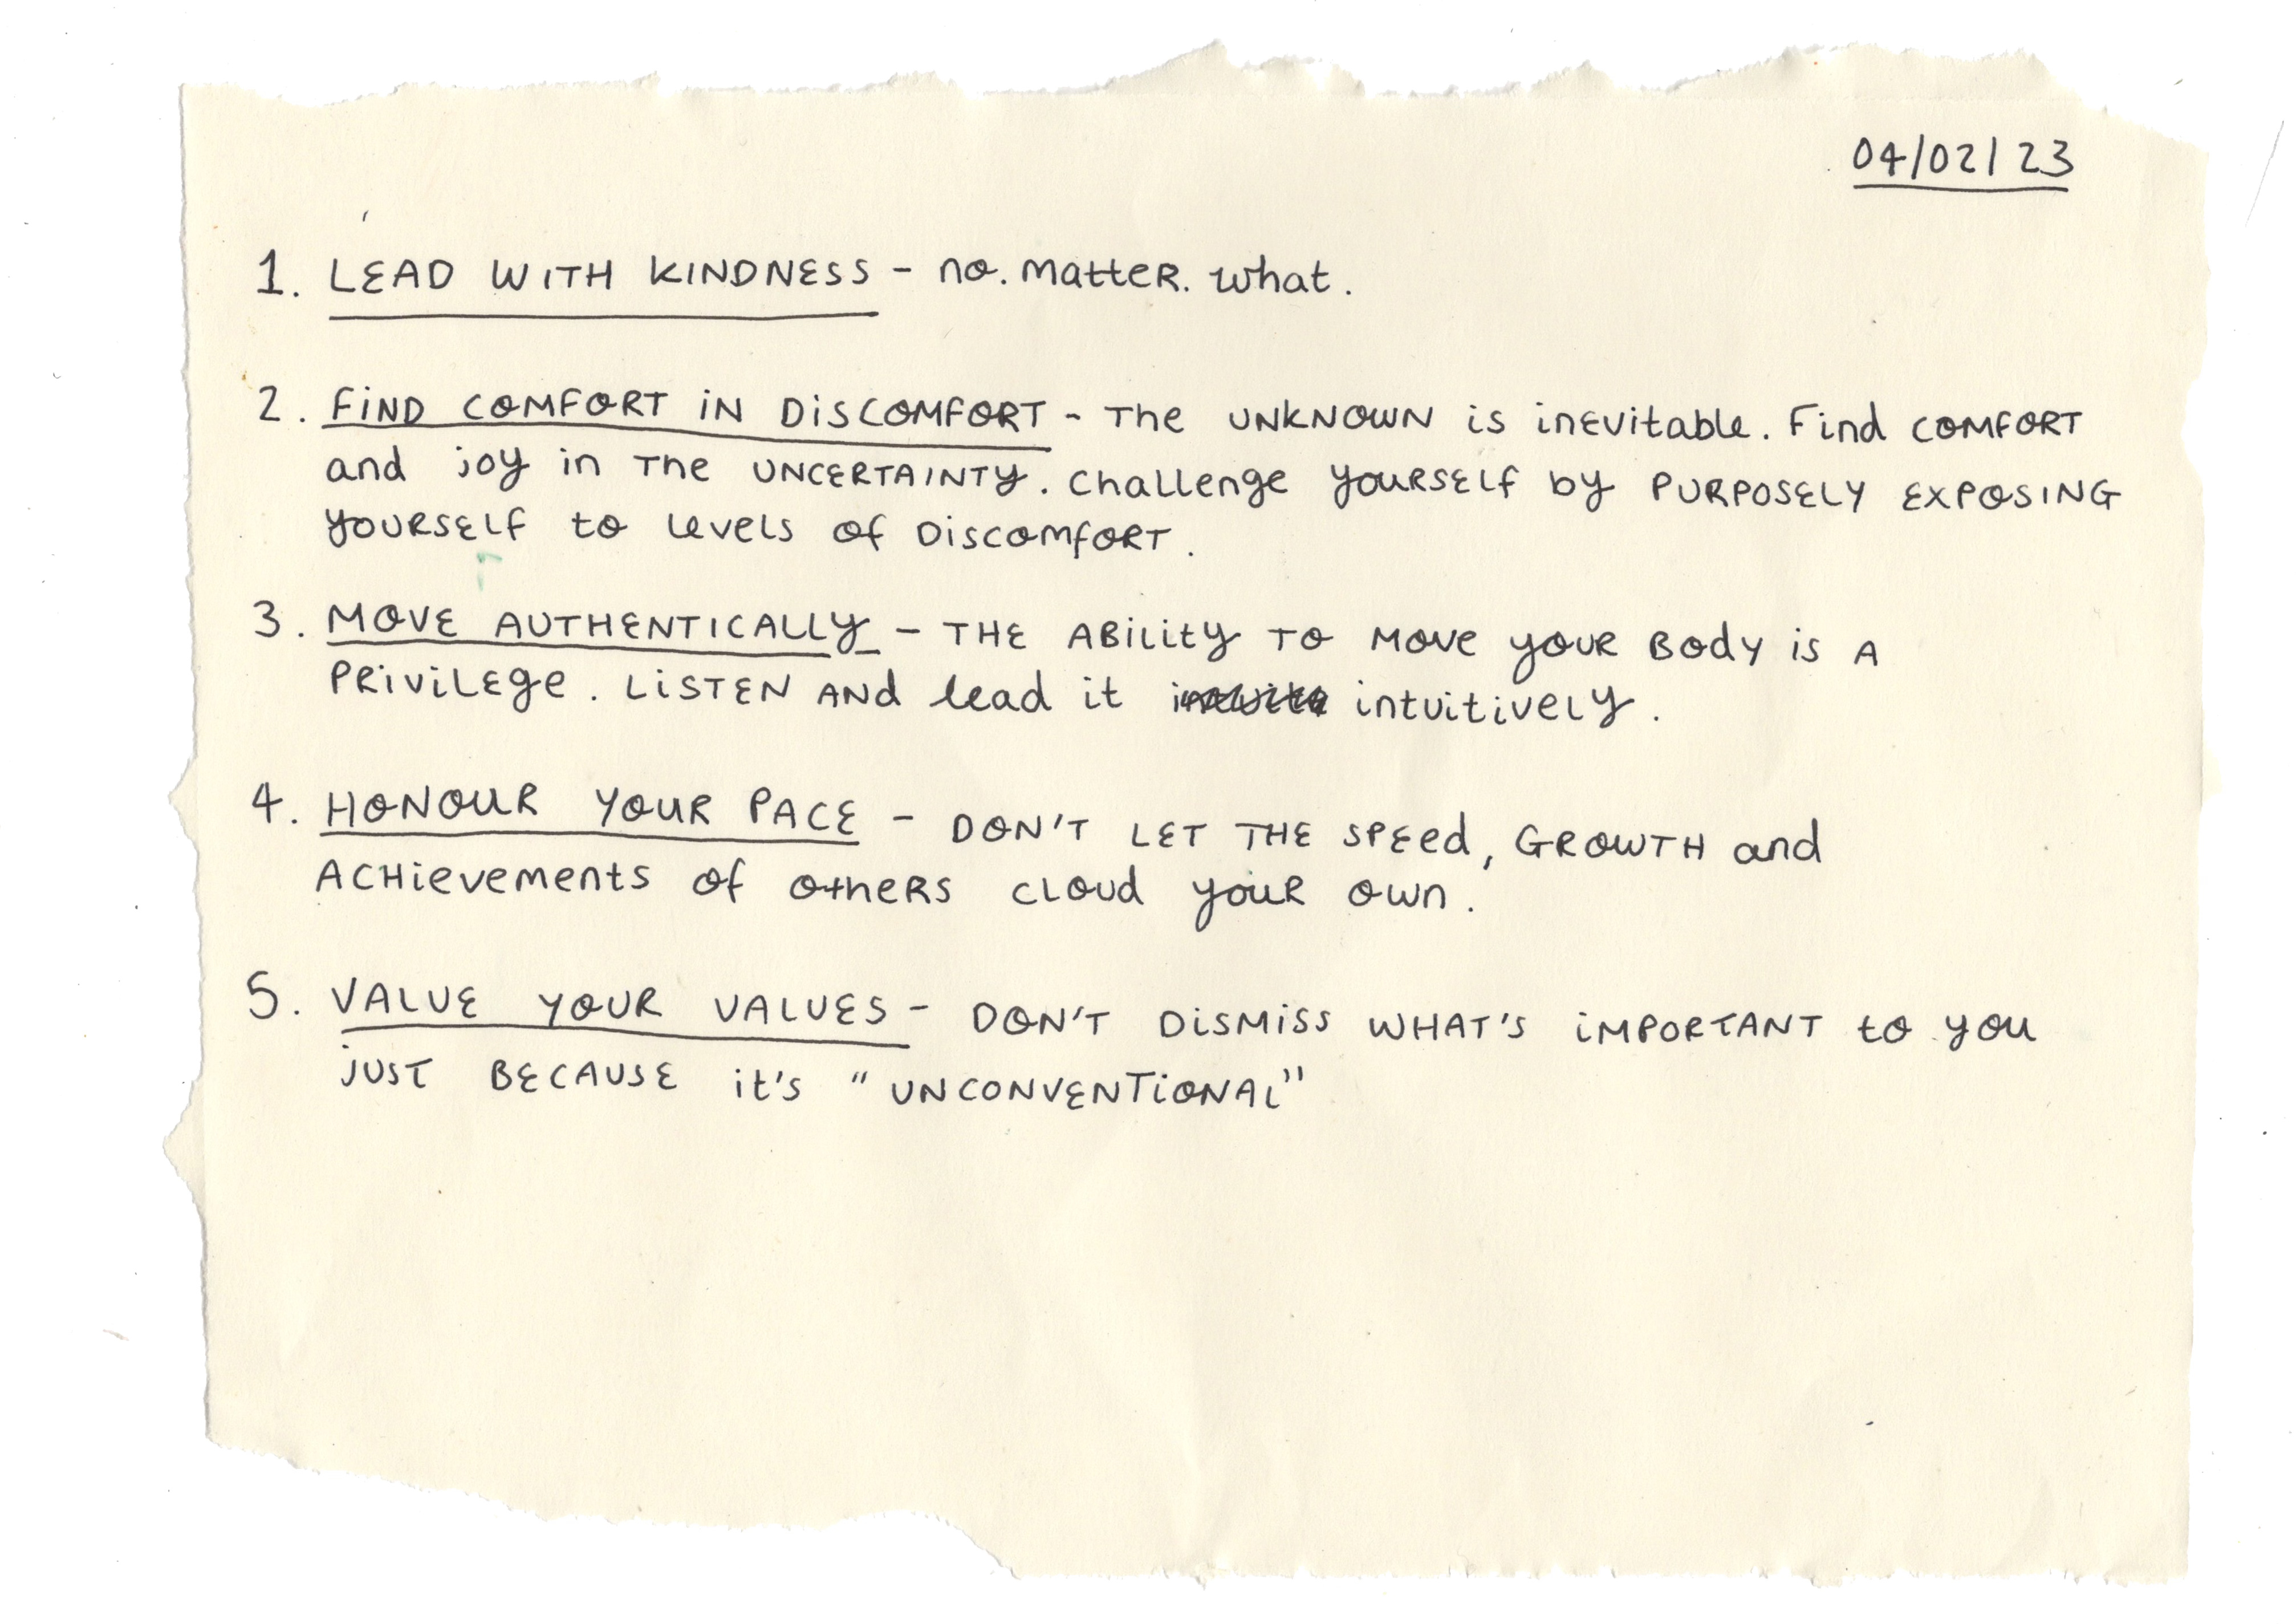 04/02/23
1. LEAD WITH KINDNESS - no. matter. what.
2. FIND COMFORT IN DISCOMFORT - The UNKNOWN is inevitable. Find COMFORT
and joy in The UNCERTAINTY. Challenge yourself by PURPOSELY EXPOSING
yourself to levels of DISCOMFORT.
3. MOVE AUTHENTICALLY - THE ABility TO MOVE your Body is A
PRiviLEge. LISTEN AND lead it intuitively.
4. HONOUR YOUR PACE - DON'T LET THE SPEED, GROWTH and
ACHievements of others cloud your own.
5. VALUE YOUR VALUES - DON'T DISMISS WHAT'S IMPORTANT to you
JUST BECAUSE it's "UNCONVENTIONAL"